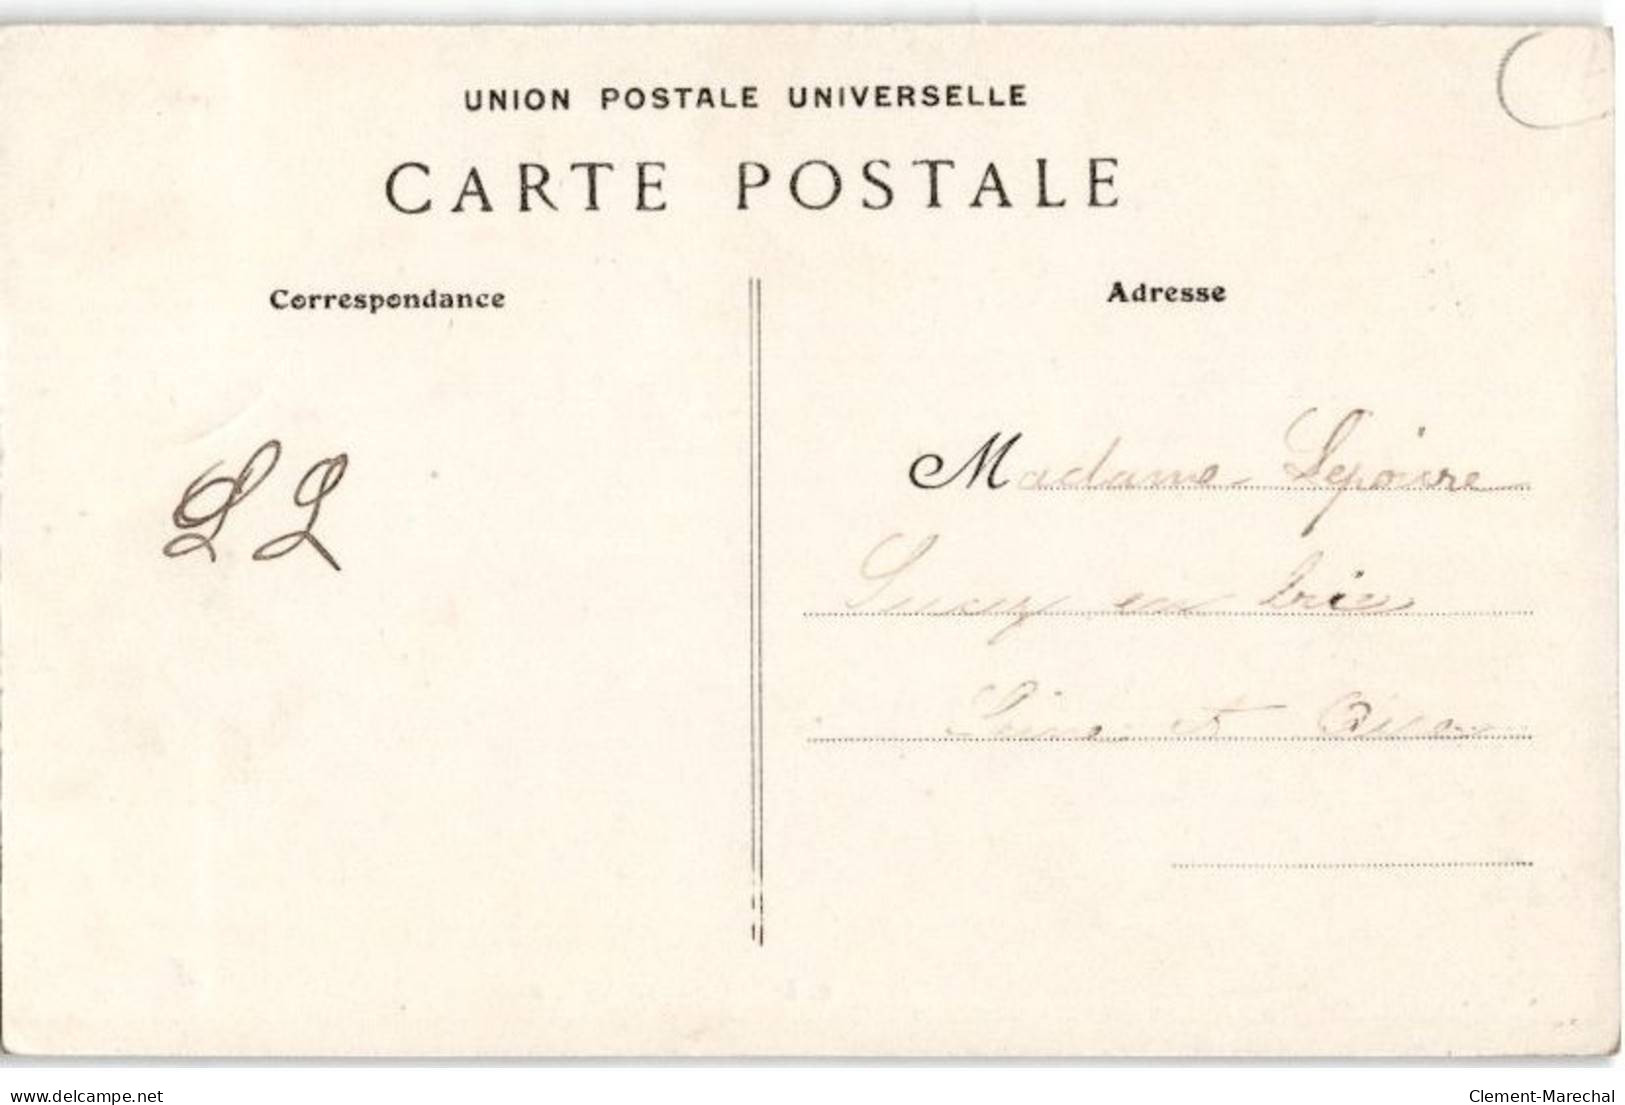 UNION POSTALE UNIVERSELLE
CARTE POSTALE
Correspondance
Adresse
L L
Madame Lepoivre
Sucy en brie
Seine et Oise
delcampe.net
Clement-Marechal